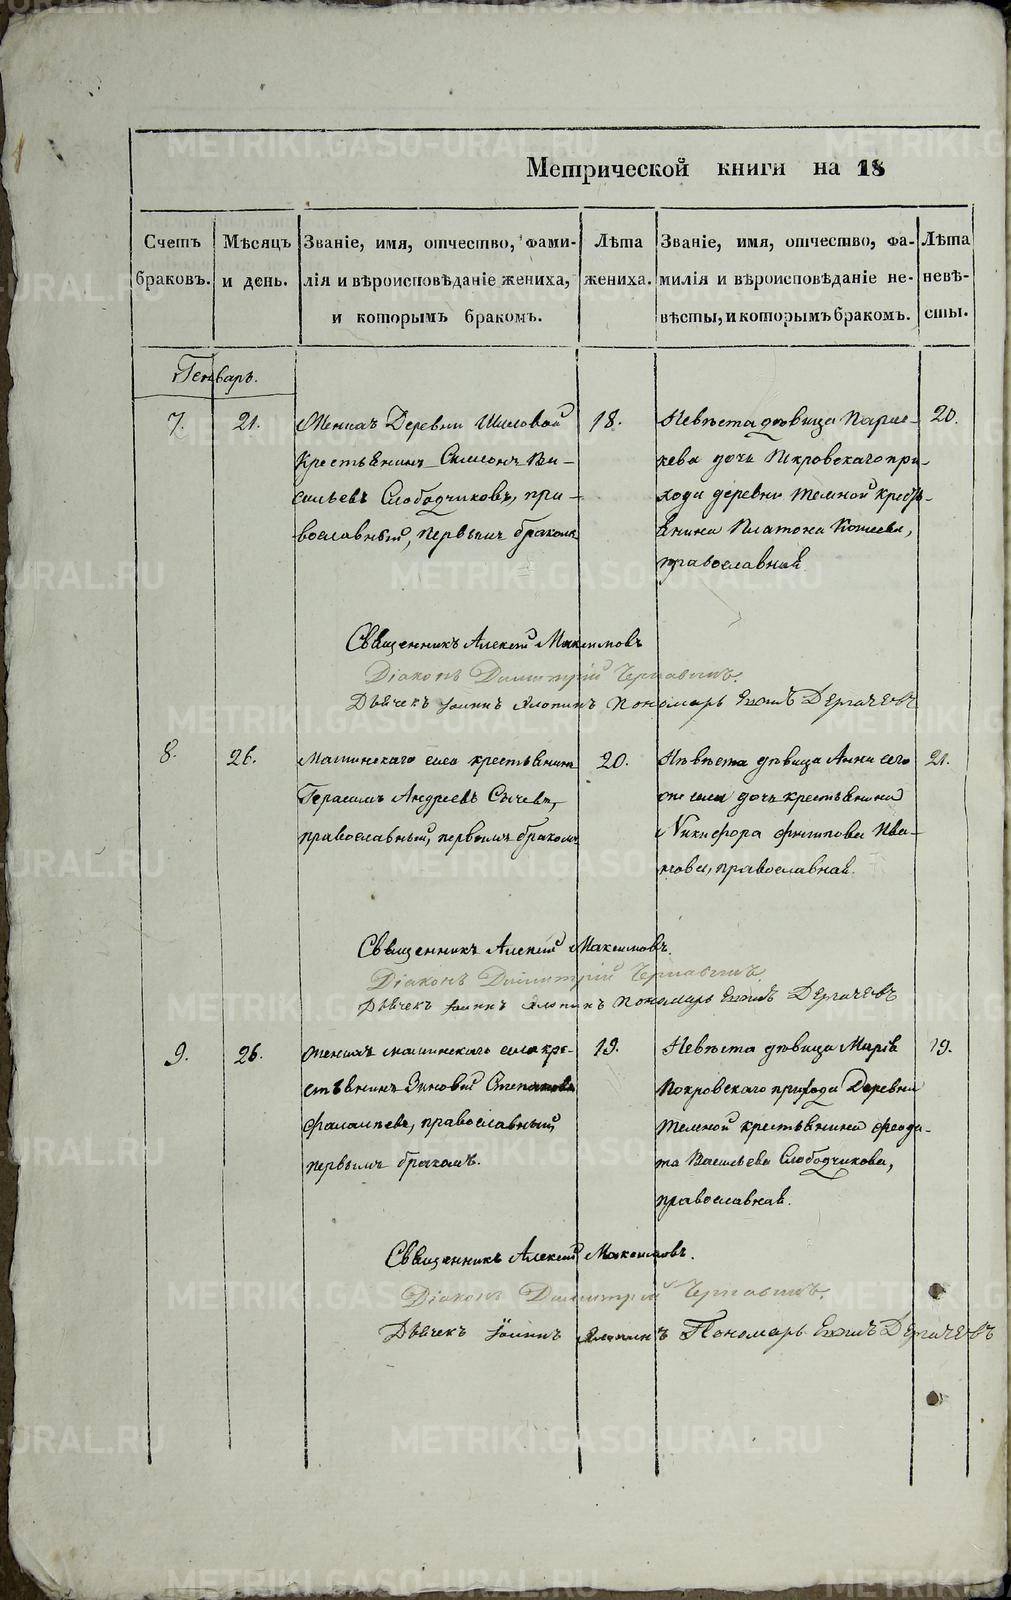 Метрической книги на 18
Счетъ браковъ.
Мѣсяцъ и день.
Званіе, имя, отчество, фами-
лія и вѣроисповѣданіе жениха,
и которымъ бракомъ.
Лѣта жениха.
Званіе, имя, отчество, фа-
милія и вѣроисповѣданіе не-
вѣсты, и которымъ бракомъ.
Лѣта невѣ-
сты.
Генварь.
7.
21.
Женихъ Деревни Шиловой
крестьянинъ Симеонъ Ва-
сильевъ Слободчиковъ, пра-
вославный, первымъ бракомъ
18.
Невѣста дѣвица Парас-
кева дочь Покровскаго при-
хода деревни Темной кресть-
янина Платона
православная.
20.
Священникъ Алексій Максимовъ
Діаконъ Димитрій
Дьячекъ Іоаннъ Пономарь Дергачевъ
8.
26.
села крестьянинъ
Герасимъ Андреевъ Сычевъ,
православный, первымъ бракомъ
20.
Невѣста дѣвица Анна сего
же села дочь крестьянина
Никифора Филипова Ива-
нова, православная.
21.
Священникъ Алексій Максимовъ.
Діаконъ Димитрій
Дьячекъ Іоаннъ Пономарь Дергачевъ
9.
26.
Женихъ села кре-
стьянинъ Зиновей Степановъ
православный,
первымъ бракомъ.
19.
Невѣста дѣвица Марія
Покровскаго прихода Деревни
Темной крестьянина Феодо-
та Васильева Слободчикова,
православная.
19.
Священникъ Алексій Максимовъ.
Діаконъ Димитрій
Дьячекъ Іоаннъ Пономарь Дергачевъ
METRIKI.GASO-URAL.RU